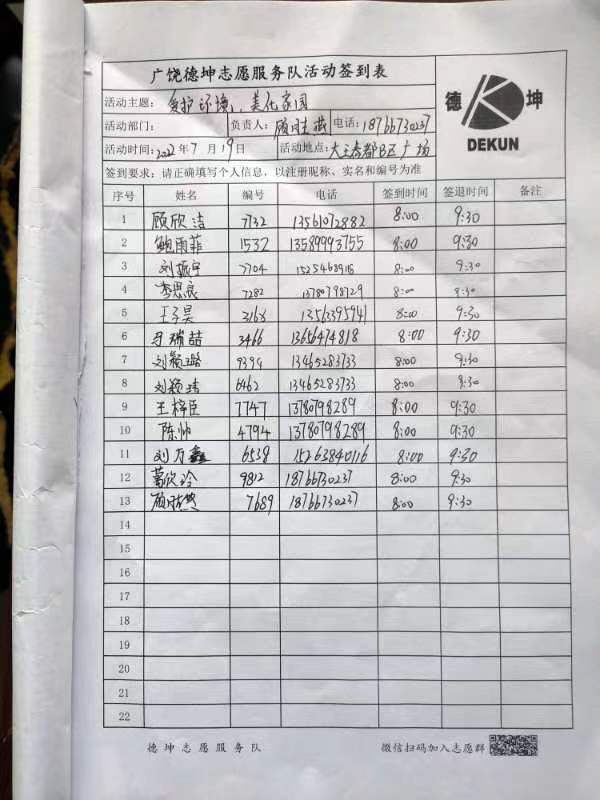 广饶德坤志愿服务队活动签到表
德 坤
DEKUN
活动主题: 爱护环境、美化家园
活动部门: 负责人: 顾胜燕 电话: 18766730237
活动时间: 2022年7月19日 活动地点: 大王香都B区广场
签到要求: 请正确填写个人信息,以注册昵称、实名和编号为准
序号 姓名 编号 电话 签到时间 签退时间 备注
1 顾欣洁 7732 13561072882 8:00 9:30
2 鲍雨菲 1532 13589993755 8:00 9:30
3 刘振宇 7704 8:00 9:30
4 李思辰 7282 13780798729 8:00 8:30
5 王子昊 8:00 9:30
6 马瑞喆 3466 13656474818 8:00 9:30
7 刘颖璐 9394 13465283733 8:00 9:30
8 刘颖洁 6462 13465283733 8:00 8:30
9 王梓臣 7747 13780798289 8:00 9:30
10 陈帅 4794 13780798289 8:00 9:30
11 刘万鑫 6538 15263840116 8:00 9:30
12 9812 18766730237 8:00 9:30
13 顾胜燕 7689 18766730237 8:00 9:30
14
15
16
17
18
19
20
21
22
德坤志愿服务队 微信扫码加入志愿群